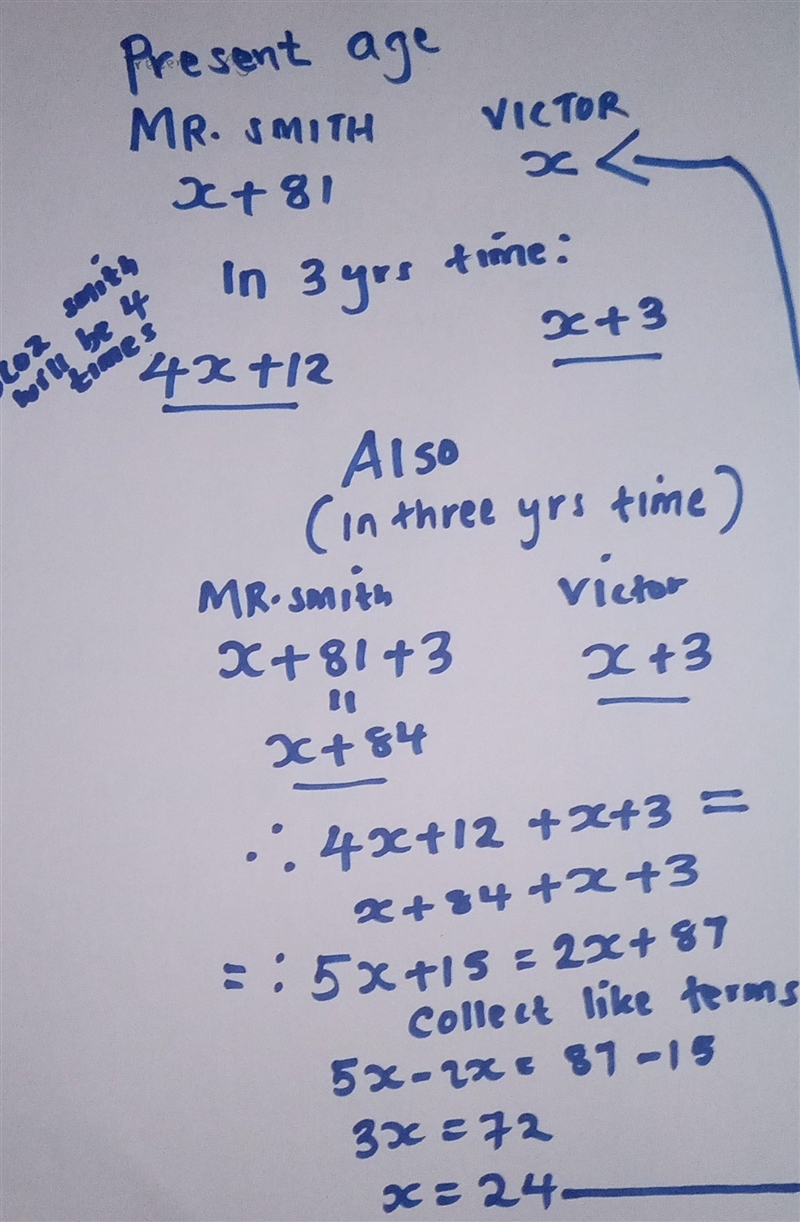 Present age
MR. SMITH VICTOR
x+81 x
In 3 yrs time:
smith
will be 4
times
4x+12 x+3
Also
(in three yrs time)
MR. smith Victor
x+81+3 x+3
=
x+84
∴ 4x+12+x+3 =
x+84+x+3
=: 5x+15 = 2x+87
Collect like terms
5x-2x = 87-15
3x = 72
x = 24